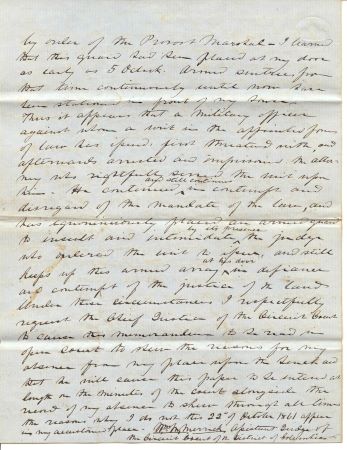 by order of the Provost Marshal – I learned
that this guard had been placed at my door
as early as 5 OClock. Armed sentries from
that time continuously until now have
been stationed in front of my house.
Thus it appears that a Military officer
against whom a writ in the appropriate form
of law has issued, first threatened with and
afterwards arrested and imprisoned the attor
ney who rightfully served the writ upon
him. He continued, and still continues in contempt and
disregard of the mandate of the law, and
has ignominiously placed an armed guard
to insult and intimidate by its presence the judge
who ordered the writ to issue, and still
keeps up this armed array at his door in defiance
and contempt of the justice of the land
Under these circumstances I respectfully
request the Chief Justice of the Circuit Court
to cause this memorandum to be read in
open court to show the reasons for my
absence from my place upon the bench and
that he will cause this paper to be entered at
length on the minutes of the court alongside the
record of my absence to show through all time
the reasons why I do not this 22d of October 1861 appear
in my accustomed place. Wm M Merrick Assistant Judge of
the Circuit Court of the District of Columbia